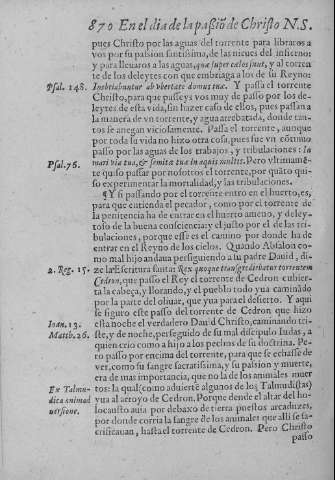 870 En el dia de la passiō de Christo N.S.
pues Christo por las aguas del torrente para libraros a
vos por su passion santissima, de las nieues del infierno:
y para lleuaros a las aguas, que super cælos sunt, y al torren
te de los deleytes con que embriaga a los de su Reyno:
Psal. 148. Inebriabuntur ab vbertate domus tuæ. Y passa el torrente
Christo, para que passeys vos muy de passo por los de-
leytes de esta vida, sin hazer caso de ellos, pues passan a
la manera de vn torrente, y agua arrebatada, donde tan-
tos se anegan viciosamente. Passa el torrente, aunque
por toda su vida no hizo otra cosa, pues fue vn cōtinuo
passo por las aguas de los trabajos, y tribulaciones: In
Psal. 76. mari via tua, & semitæ tuæ in aquis multis. Pero vltimamē-
te quiso passar por nosotros el torrente, por quāto qui-
so experimentar la mortalidad, y las tribulaciones.
¶ Y si passando por el torrente entro en el huerto, es,
para que entienda el pecador, como por el torrente de
la penitencia ha de entrar en el huerto ameno, y deley-
toso de la buena consciencia: y el justo por el de las tri-
bulaciones, porque esse es el camino por donde ha de
entrar en el Reyno de los cielos. Quando Absalon co-
mo mal hijo andaua persiguiendo a su padre Dauid, di-
2. Reg. 15. ze la Escritura santa: Rex quoque transgrediebatur torrentem
Cedron, que passo el Rey el torrente de Cedron cubier-
ta la cabeça, y llorando, y el pueblo todo yua caminādo
por la parte del oliuar, que yua para el desierto. Y aqui
se siguro este passo del torrente de Cedron que hizo
Ioan. 13. esta noche el verdadero Dauid Christo, caminando tri-
Matth. 26. ste, y de noche, perseguido de su mal discipulo Iudas, a
quien crio como a hijo a los pechos de su doctrina. Pe-
ro passo por encima del torrente, para que se echasse de
ver, como su sangre sacratissima, y su passion y muerte,
era de mas importancia, que no la de los animales muer
Ex Talmu- tos: la qual como aduierte algunos de los Talmudistas)
dica animad yua al arroyo de Cedron. Porque dende el altar del ho-
uersione. locausto auia por debaxo de tierra puestos arcaduzes,
por donde corria la sangre de los animales que alli se sa-
crificauan, hasta el torrente de Cedron. Pero Christo
passo